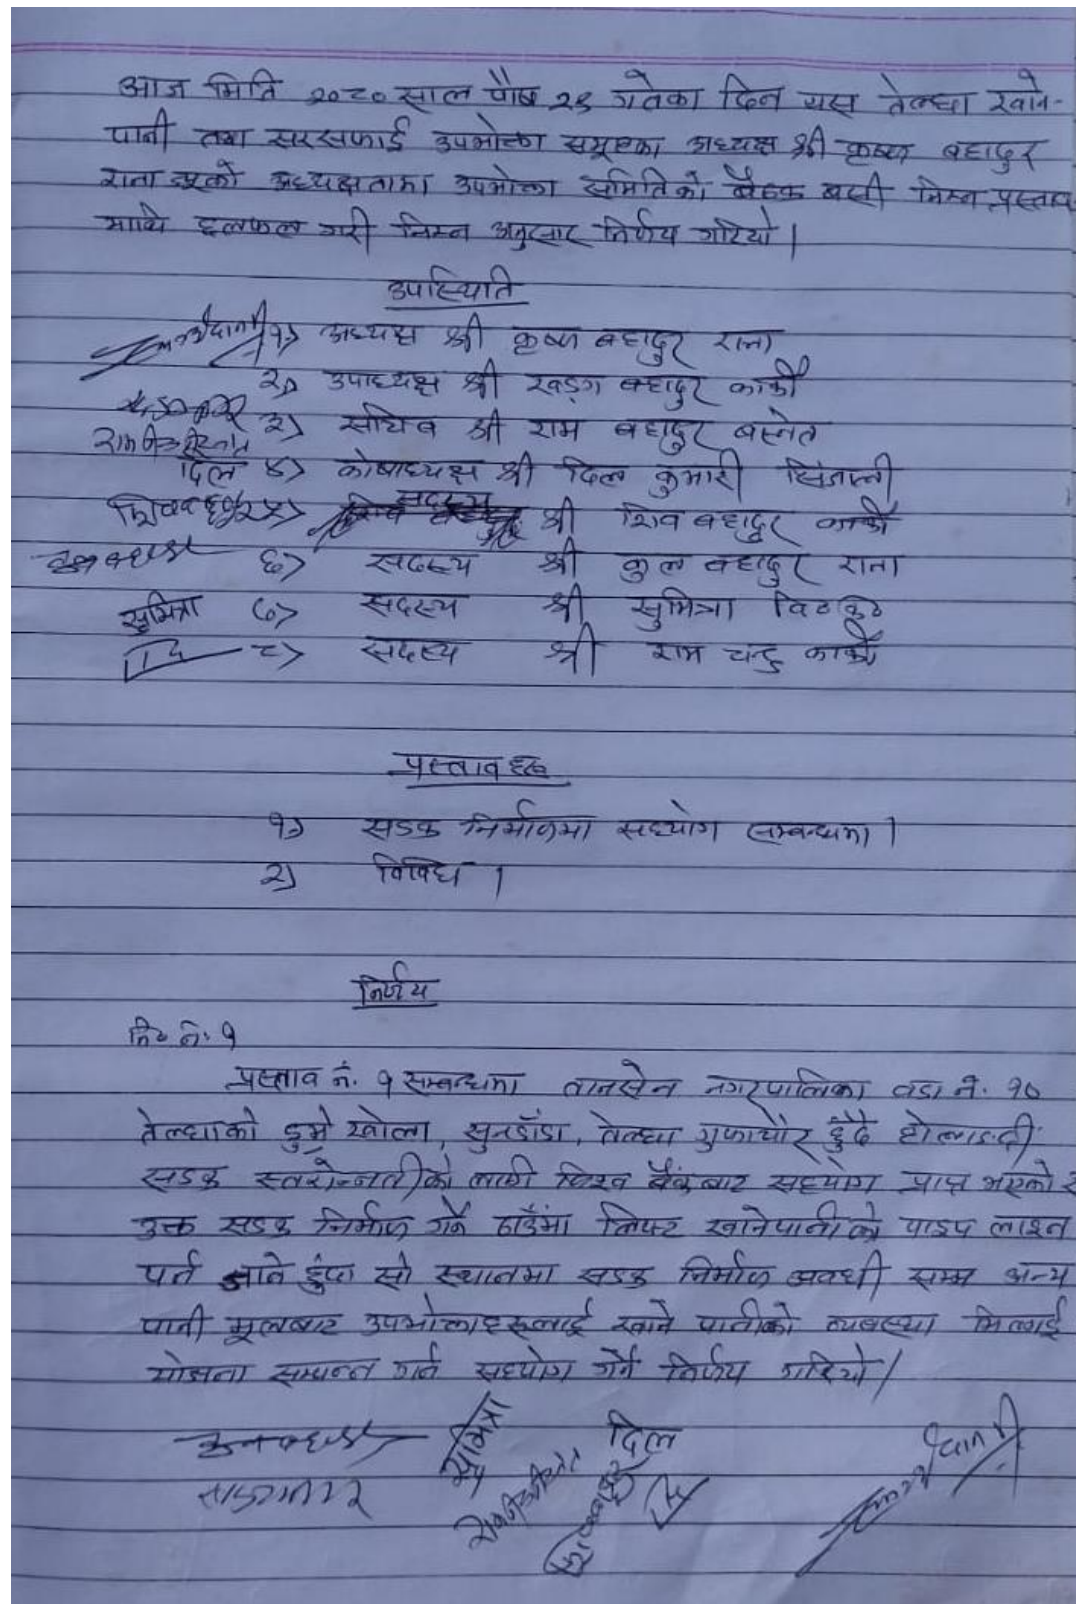 आज मिति २०८० साल पौष २९ गतेका दिन यस तेल्घा खाने-
पानी तथा सरसफाई उपभोक्ता समूहका अध्यक्ष श्री कृष्ण बहादुर
राना ज्यूको अध्यक्षतामा उपभोक्ता समितिको बैठक बसी निम्न प्रस्ताव
माथि छलफल गरी निम्न अनुसार निर्णय गरियो |
उपस्थिति
१) अध्यक्ष श्री कृष्ण बहादुर राना
२) उपाध्यक्ष श्री खड्ग बहादुर कार्की
३) सचिव श्री राम बहादुर बस्नेत
दिल ४) कोषाध्यक्ष श्री दिल कुमारी सिंजाली
शिवबहादुर ५) सदस्य श्री शिव बहादुर कार्की
६) सदस्य श्री कुल बहादुर राना
सुमित्रा ७) सदस्य श्री सुमित्रा
८) सदस्य श्री राम चन्द्र कार्की
प्रस्तावहरु
१) सडक निर्माणमा सहयोग सम्बन्धमा |
२) विविध |
निर्णय
नि० नं. १
प्रस्ताव नं. १ सम्बन्धमा तानसेन नगरपालिका वडा नं. १०
तेल्घाको डुम्रे खोला, सुनडाँडा, तेल्घा गुफाचौर हुँदै होलाङ्दी
सडक स्तरोन्नतीको लागी विश्व बैंकबाट सहयोग प्राप्त भएको र
उक्त सडक निर्माण गर्ने ठाउँमा लिफ्ट खानेपानीको पाइप लाइन
पर्न जाने हुंदा सो स्थानमा सडक निर्माण अवधी सम्म अन्य
पानी मूलबाट उपभोक्ताहरूलाई खाने पानीको व्यवस्था मिलाई
योजना सम्पन्न गर्न सहयोग गर्ने निर्णय गरियो |
सुमित्रा दिल